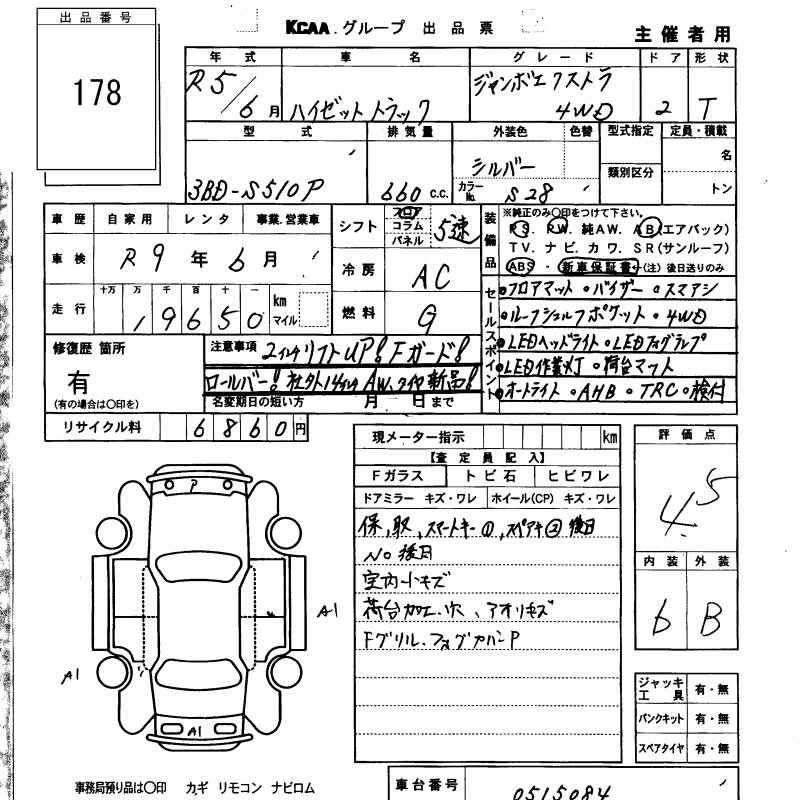 出品番号
178
KCAA.グループ 出品票
主催者用
年式 車名 グレード ドア 形状
R5/6月 ハイゼットトラック ジャンボエクストラ 4WD 2 T
型式 排気量 外装色 色替 型式指定 定員・積載
3BD-S510P 660 c.c. シルバー 類別区分 名
カラーNo. S28 トン
車歴 自家用 レンタ 事業.営業車
シフト フロア コラム パネル 5速
装備品 ※純正のみ〇印をつけて下さい。
PS. PW. 純AW. AB(エアバック)
TV. ナビ. カワ. SR(サンルーフ)
ABS ・ 新車保証書 (注) 後日送りのみ
車検 R9年6月
冷房 AC
走行 十万 万 千 百 十 一
19650 km マイル
燃料 G
セールスポイント
・フロアマット ・バイザー ・スマアシ
・ルーフシェルフポケット ・4WD
・LEDヘッドライト ・LEDフォグランプ
・LED作業灯 ・荷台マット
・オートライト ・AHB ・TRC ・検付
修復歴 箇所
有
(有の場合は〇印を)
注意事項 2インチリフトUP! Fガード!
ロールバー! 社外14インチAW、タイヤ新品!
名変期日の短い方 月 日まで
リサイクル料 6860円
現メーター指示 km
【査定員記入】
Fガラス トビ石 ヒビワレ
ドアミラー キズ・ワレ ホイール(CP) キズ・ワレ
保、取、スマートキー①、スペアキー②後日
No後日
室内小キズ
荷台加工.穴、アオリキズ
Fグリル.フォグカバーP
評価点
4.5
内装 外装
6 B
P
A1
A1
A1
ジャッキ工具 有・無
パンクキット 有・無
スペアタイヤ 有・無
事務局預り品は〇印 カギ リモコン ナビロム
車台番号 0515084